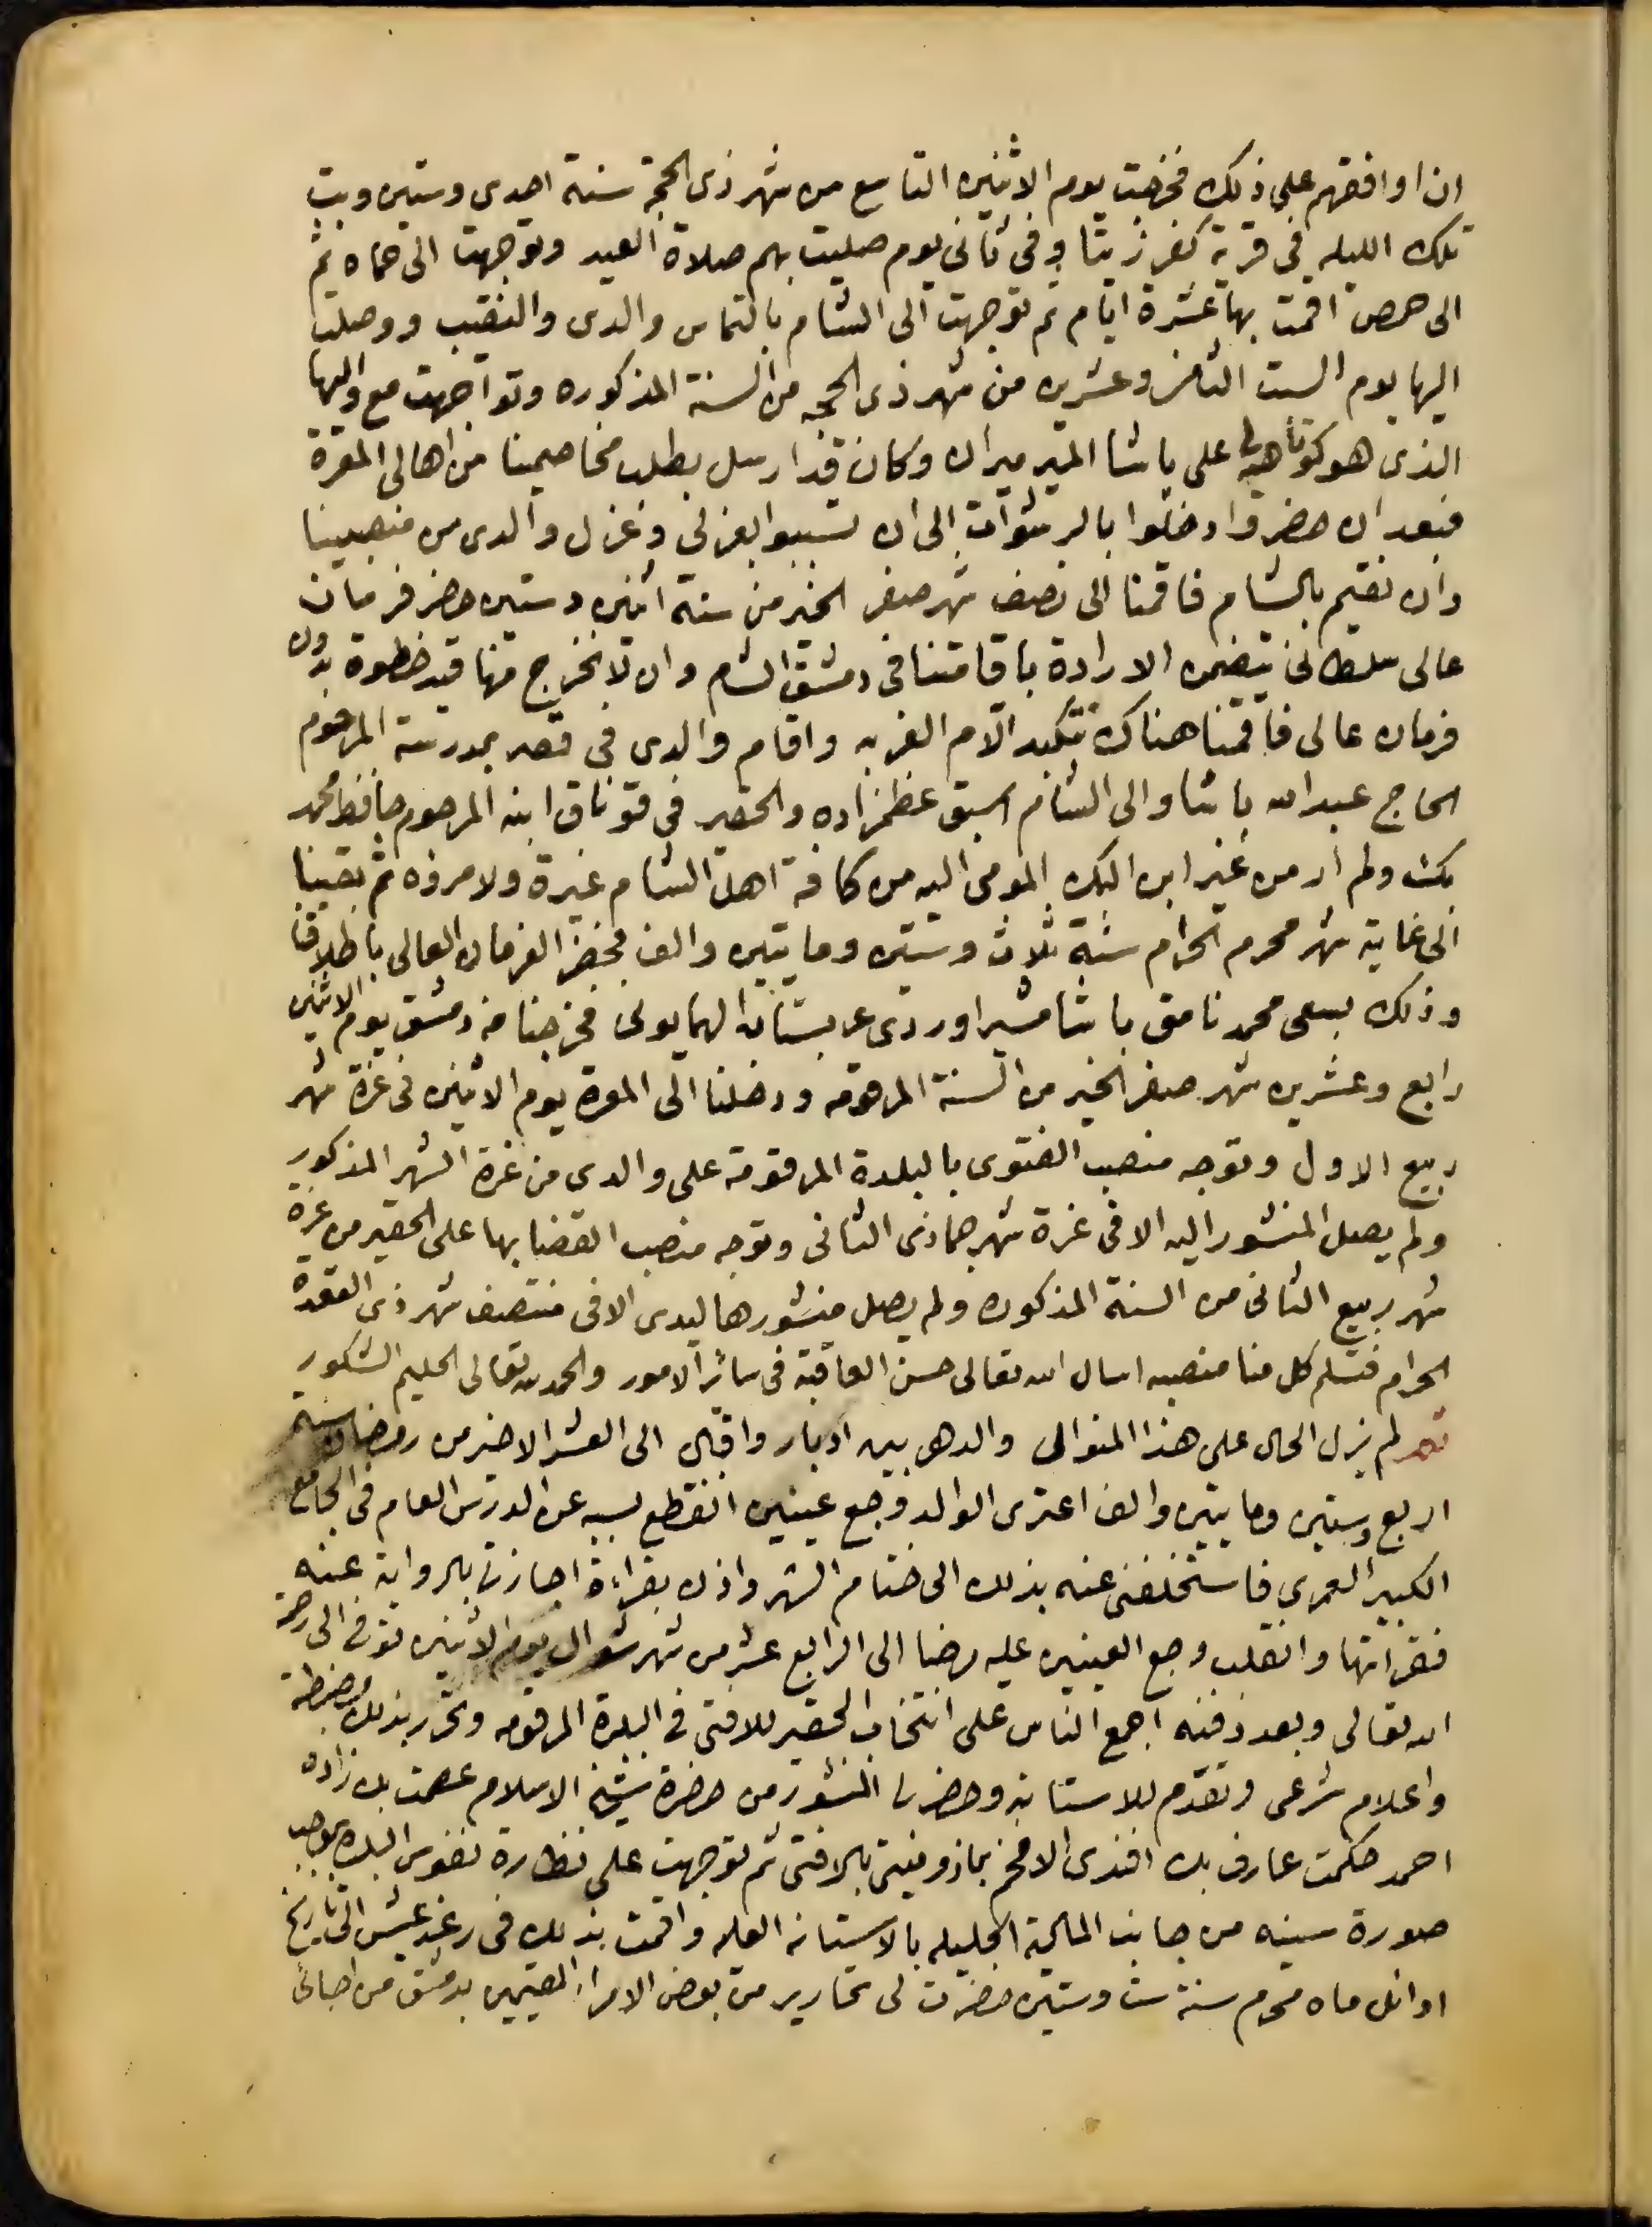 ان اوافقهم على ذلك فخرجت يوم الاثنين التاسع من شهر ذى الحجة سنة احدى وستين وبت
تلك الليله في قرية كفرزيتا وفى ثانى يوم صليت بهم صلاة العيد وتوجهت الى حماه ثم
الى حمص اقمت بها عشرة ايام ثم توجهت الى الشام بالتماس والدى والنقيب ووصلت
اليها يوم السبت الثامن وعشرين من شهر ذى الحجه من السنة المذكوره وتواجهت مع واليها
الذى هو كوتاهيه لى على باشا الميرميران وكان قد ارسل بطلب مخاصمينا من اهالى المعرة
فبعد ان حضروا دخلوا بالرشوات الى ان تسببوا بعزلي وعزل والدى من منصبينا
وان نقيم بالشام فاقمنا الى نصف شهر صفر الخير من سنة اثنين وستين حضر فرمان
عالى سلطانى يتضمن الارادة باقامتنا فى دمشق الشام وان لا نخرج منها قيد خطوة بدون
فرمان عالى فاقمنا هناك نتكبد آلام الغربه واقام والدى فى قصر بمدرسة المرحوم
الحاج عبد الله باشا والى الشام اسبق عظمزاده والحقير فى قوناق ابنه المرحوم حافظ محمد
بك ولم أر من غير ابن البك المومى اليه من كافة اهل الشام غيرة ولا مروة ثم بقينا
الى غاية شهر محرم الحرام سنة ثلاث وستين ومايتين والف فحضر الفرمان العالى باطلاقنا
وذلك بسعى محمد نامق باشا مشير اوردى عربستان الهمايونى فخرجنا من دمشق يوم الاثنين
رابع وعشرين شهر صفر الخير من السنة المرقومه ودخلنا الى المعرة يوم الاثنين فى غرة شهر
ربيع الاول وتوجه منصب الفتوى بالبلدة المرقومة على والدى من غرة الشهر المذكور
ولم يصل المنشور اليه الا فى غرة شهر جمادى الثانى وتوجه منصب القضا بها على الحقير من غرة
شهر ربيع الثانى من السنة المذكوره ولم يصل منشورها ليدى الا فى منتصف شهر ذى القعدة
الحرام فتسلم كل منا منصبه اسال الله تعالى حسن العاقبة فى سائر الامور والحمد لله تعالى الحليم الشكور
ثم لم يزل الحال على هذا المنوال والدهر بين ادبار واقبال الى العشر الاخير من رمضان سنة
اربع وستين ومايتين والف اعترى الوالد وجع عينين انقطع بسببه عن الدرس العام فى الجامع
الكبير العمرى فاستخلفنى عنه بذلك الى ختام الشهر واذن بقراءة اجازتى بالرواية عنه
فقراتها وانقلب وجع العينين عليه مرضا الى الرابع عشر من شهر شوال يوم الاثنين توفى الى رحمة
الله تعالى وبعد دفنه اجمع الناس على انتخاب الحقير للافتى فى البلدة المرقومه وتحرر بذلك مضبطة
واعلام شرعى وتقدم للاستانه وحضر لى المنشور من حضرة شيخ الاسلام عصمت بك زاده
احمد حكمت عارف بك افندى الافخم بماذونيتى بالافتى ثم توجهت على نظارة نفوس البلدة بموجب
صورة سنيه من جانب المالية الجليله بالاستانه العليه واقمت بذلك فى رغد عيش الى تاريخ
اوائل ماه محرم سنة ست وستين حضرت لى تحارير من بعض الامراء المقيمين بدمشق من احبائى